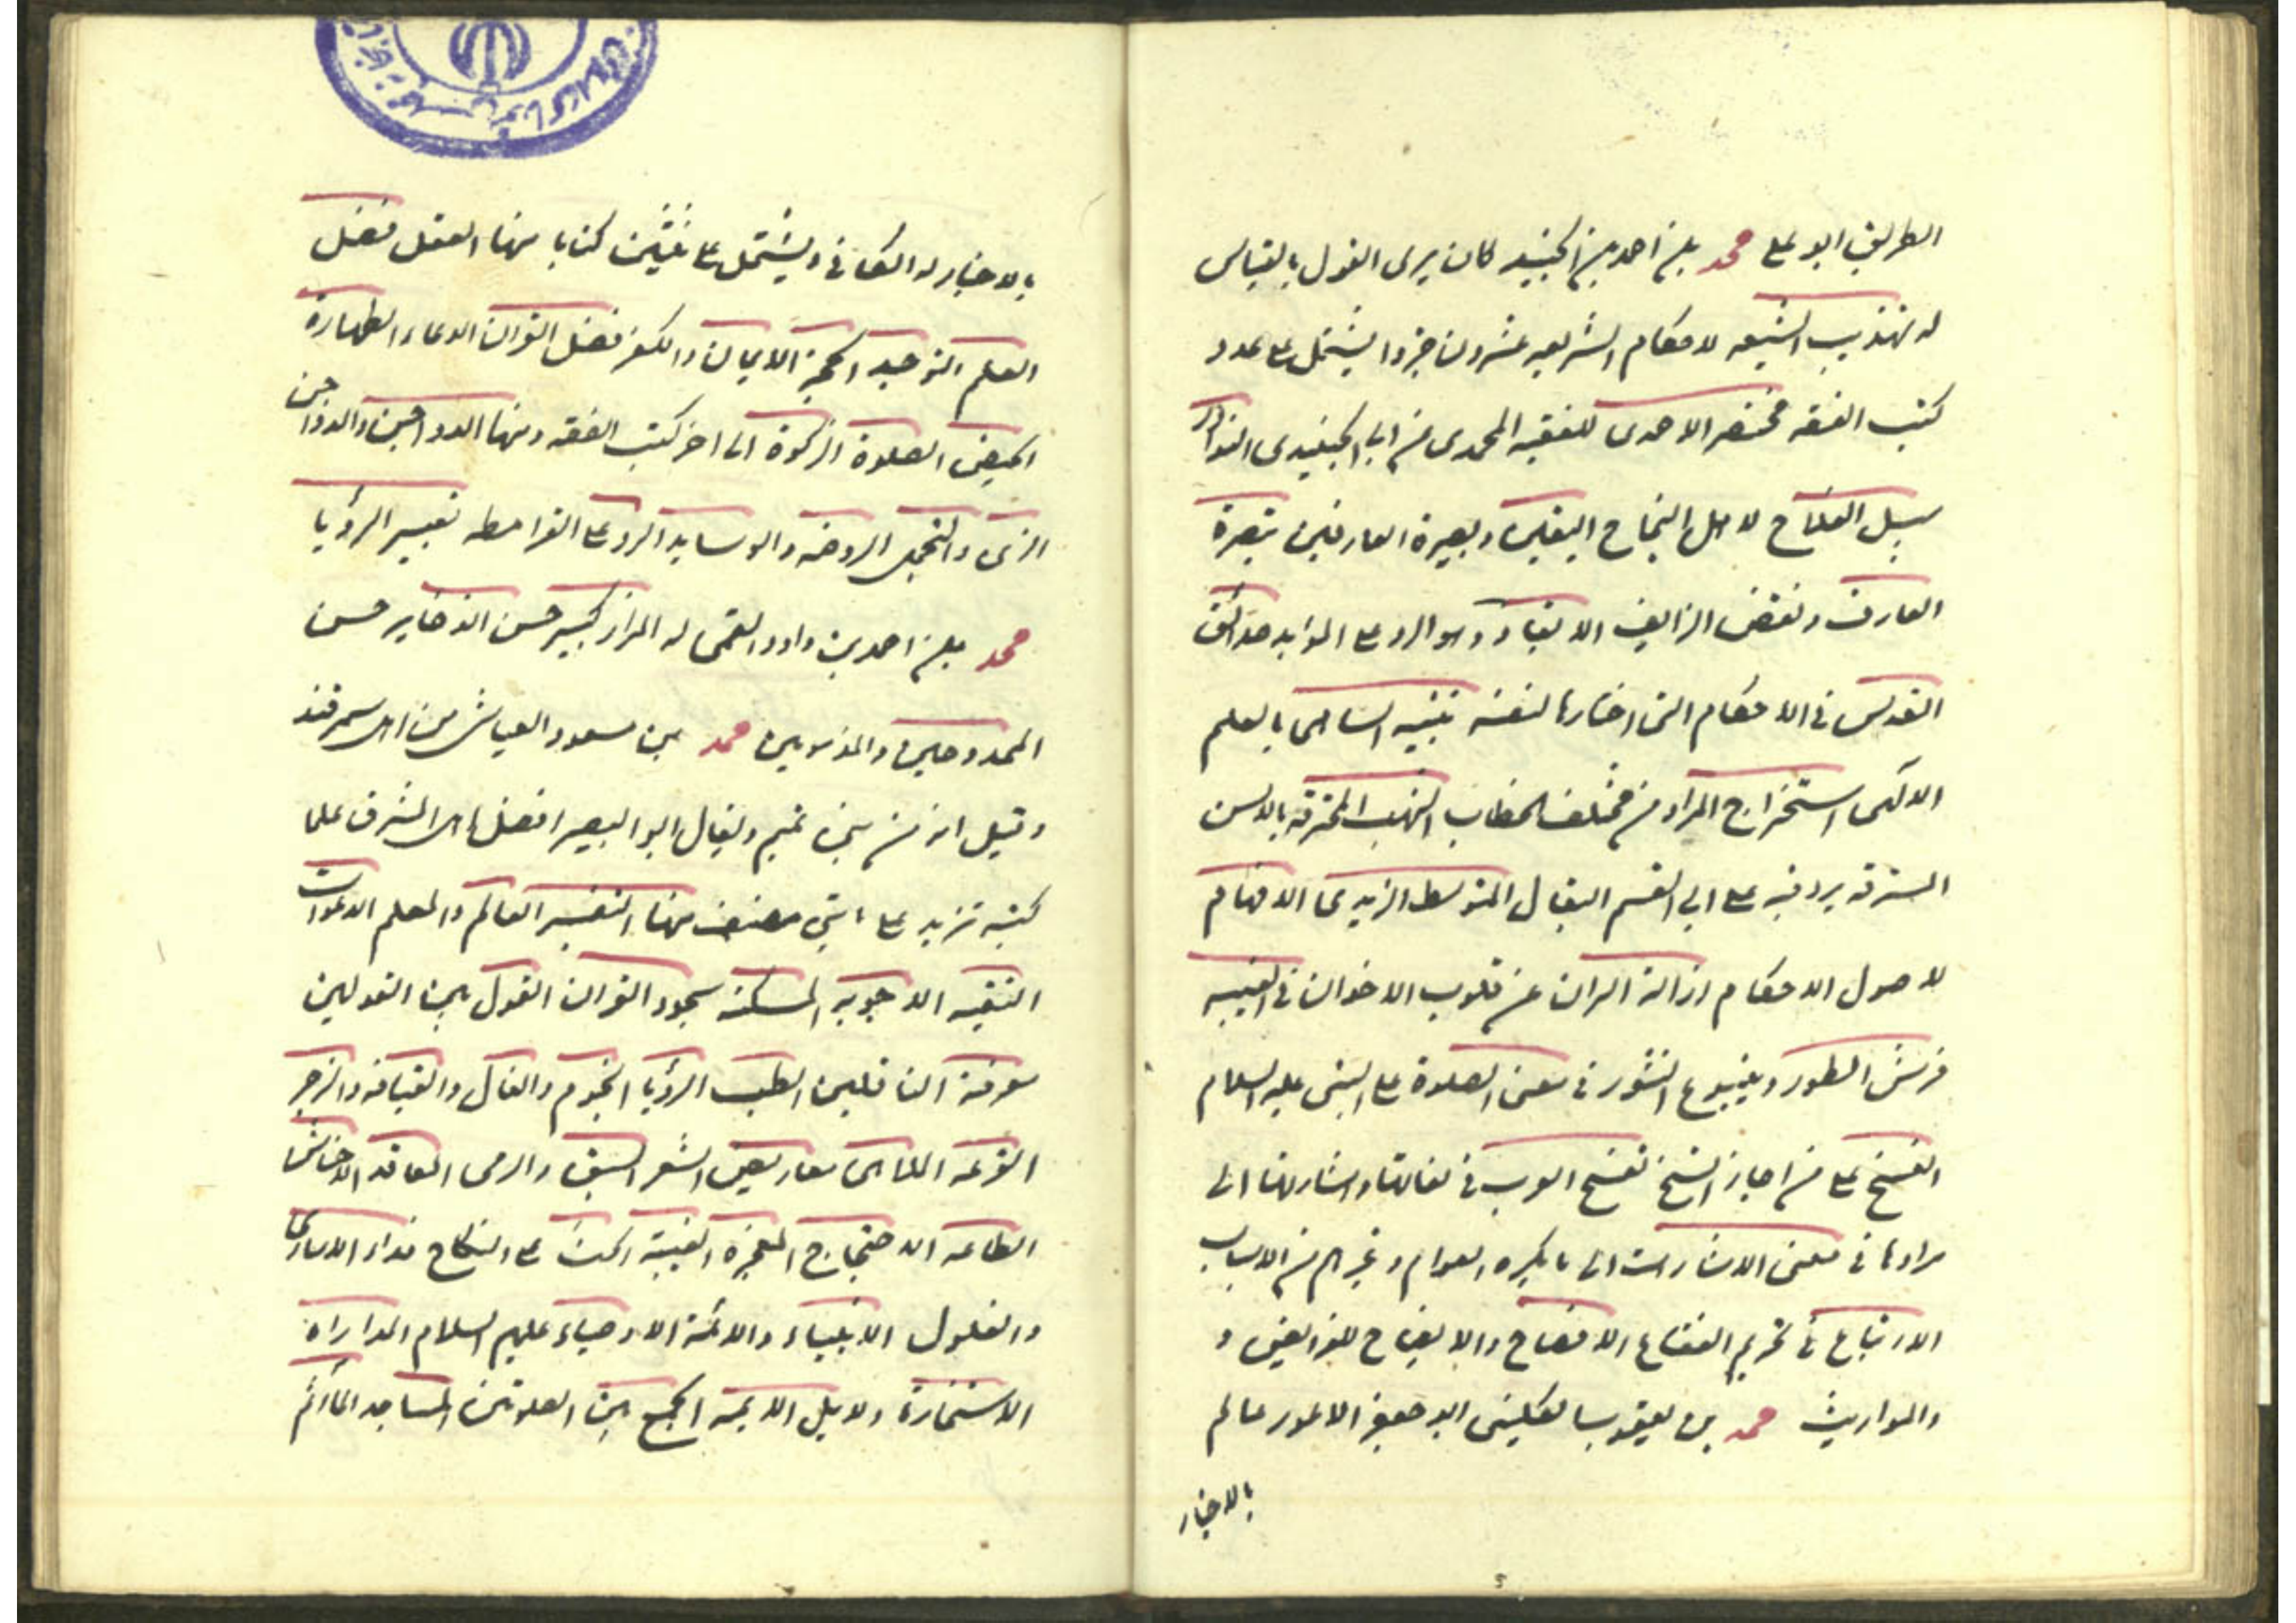 الطريق ابو على محمد بن احمد بن الجنيد كان يرى القول بالقياس
له تهذيب الشيعه لاحكام الشريعه عشرون جزوا يشتمل على عدد
كتب الفقه مختصر الاحمدى للفقيه المحمدى من ابى الجنيدى النوادر
سبيل الفلاح لاهل النجاح اليقين وبصيرة العارفين تبصرة
العارف ونقض الزايف الانقاد وهو الرد على المؤيد حدائق
القدس فى الاحكام التى اختارها لنفسه تنبيه الساهى بالعلم
الالهى استخراج المراد من مختلف الخطاب الشهب المحرقه بالالسن
المسترقه يرد فيه على ابى القسم البقال المتوسط الزيدى الافهام
لاصول الاحكام ازالة الران عن قلوب الاخوان فى الغيبه
قدس الطور وينبوع النور فى معنى الصلوة على النبى عليه السلام
الفسخ على من اجاز النسخ تفسخ العرب فى لغاتها واشاراتها الى
مرادها فى معنى الاشارات الى ما ينكره العوام وغيرهم من الاسباب
الارتياع فى تحريم الفقاع الافصاح والايضاح للفرايض و
والمواريث محمد بن يعقوب الكلينى ابو جعفر الاعور عالم
بالاخبار
بالاخبار له الكافى ويشتمل على ثلثين كتابا منها العقل فضل
العلم التوحيد الحجة الايمان والكفر فضل القران الدعاء الطهارة
الحيض الصلوة الزكوة الى اخر كتب الفقه ومنها الدواجن والدواجن
الزى والتجمل الروضه والوسايد الرد على القرامطه تعبير الرؤيا
محمد بن احمد بن داود القمى له المزار كبير حسن الذخاير حسن
الممدوحين والمذمومين محمد بن مسعود العياشى من اهل سمرقند
وقيل انه من بنى تميم ويقال ابو البصير افضل اهل المشرق علما
كتبه تزيد على مايتى مصنف منها التفسير العالم والمعلم الدعوات
التقيه الاجوبه المسكته سجود القران القول بين القولين
معرفة الناقلين الطب الرؤيا النجوم والفال والقيافه والزجر
القرعه الملاهى معاريض الشعر السبق والرمى العاقه الاضاحى
الطاعه الاحتجاج المعجزه الغيبة الحث على النكاح فداء الاسارى
والغلول الانبياء والائمة الاوصياء عليهم السلام المداراه
الاستخارة ودلايل الايمه الجمع بين الصلوتين المساجد المآثم